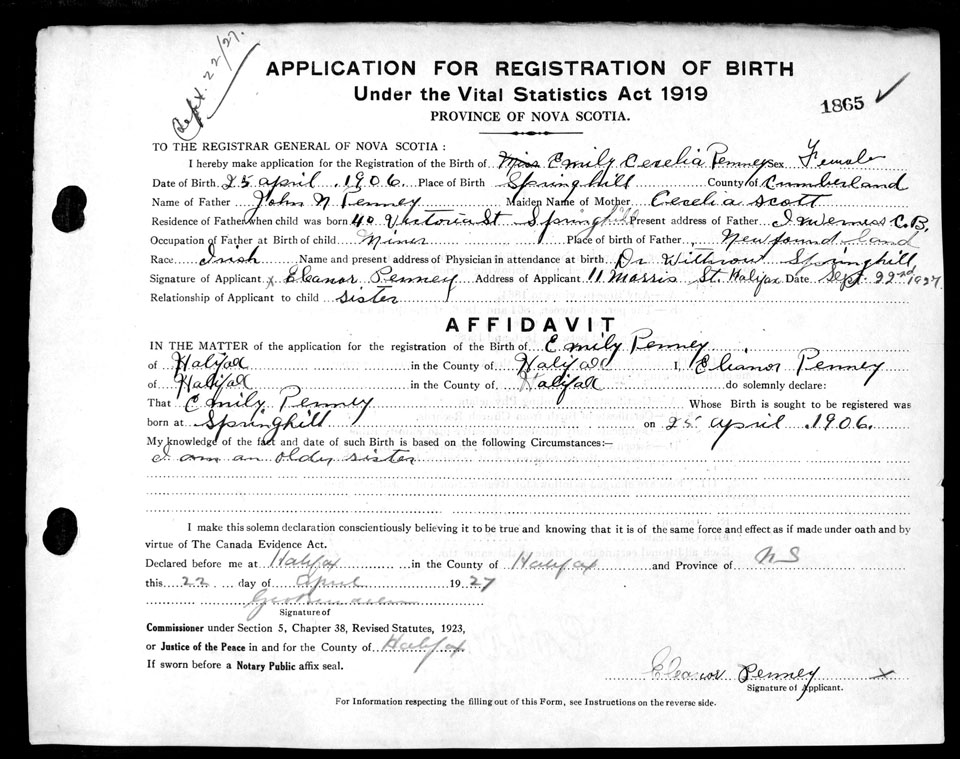 Sept. 22/27.
APPLICATION FOR REGISTRATION OF BIRTH
Under the Vital Statistics Act 1919
1865
PROVINCE OF NOVA SCOTIA.
TO THE REGISTRAR GENERAL OF NOVA SCOTIA:
I hereby make application for the Registration of the Birth of Miss Emily Cecelia Penney Sex Female
Date of Birth 25 April 1906. Place of Birth Springhill County of Cumberland
Name of Father John N Penney Maiden Name of Mother Cecelia Scott
Residence of Father when child was born 40 Victoria St Springhill Present address of Father Inverness C.B.
Occupation of Father at Birth of child Miner Place of birth of Father Newfoundland
Race Irish Name and present address of Physician in attendance at birth Dr Withrow Springhill
Signature of Applicant x Eleanor Penney Address of Applicant 11 Morris St. Halifax Date Sept 22nd 1927
Relationship of Applicant to child sister
AFFIDAVIT
IN THE MATTER of the application for the registration of the Birth of Emily Penney
of Halifax in the County of Halifax I, Elianor Penney
of Halifax in the County of Halifax do solemnly declare:
That Emily Penney Whose Birth is sought to be registered was
born at Springhill on 25 April 1906.
My knowledge of the fact and date of such Birth is based on the following Circumstances:—
I am an older sister
I make this solemn declaration conscientiously believing it to be true and knowing that it is of the same force and effect as if made under oath and by
virtue of The Canada Evidence Act.
Declared before me at Halifax in the County of Halifax and Province of N S
this 22 day of April 1927
Signature of
Commissioner under Section 5, Chapter 38, Revised Statutes, 1923,
or Justice of the Peace in and for the County of Halifax
If sworn before a Notary Public affix seal.
Eleanor Penney x
Signature of Applicant.
For Information respecting the filling out of this Form, see Instructions on the reverse side.